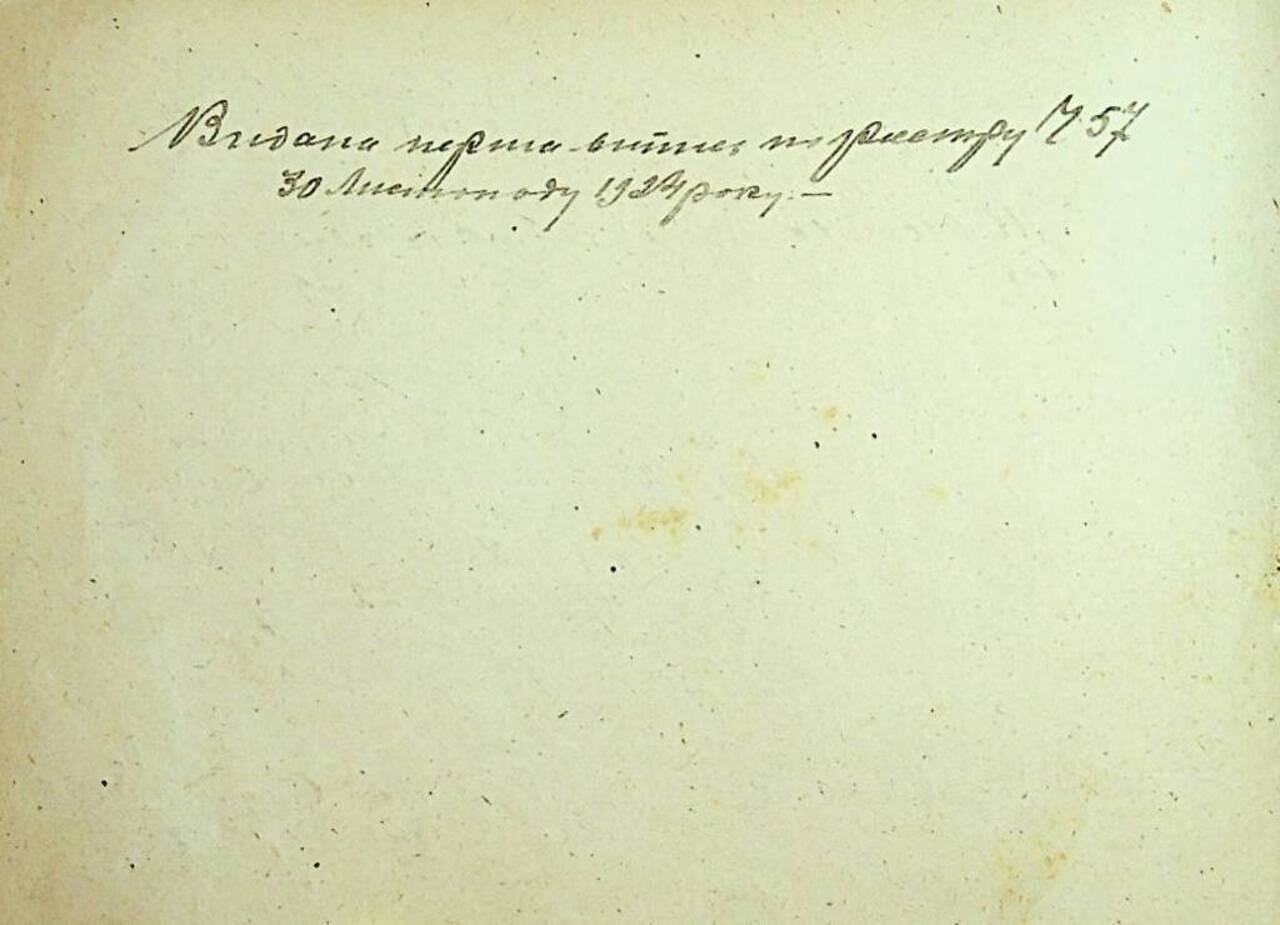 Видана перша випись по реєстру № 57
30 Листопаду 1924 року. —